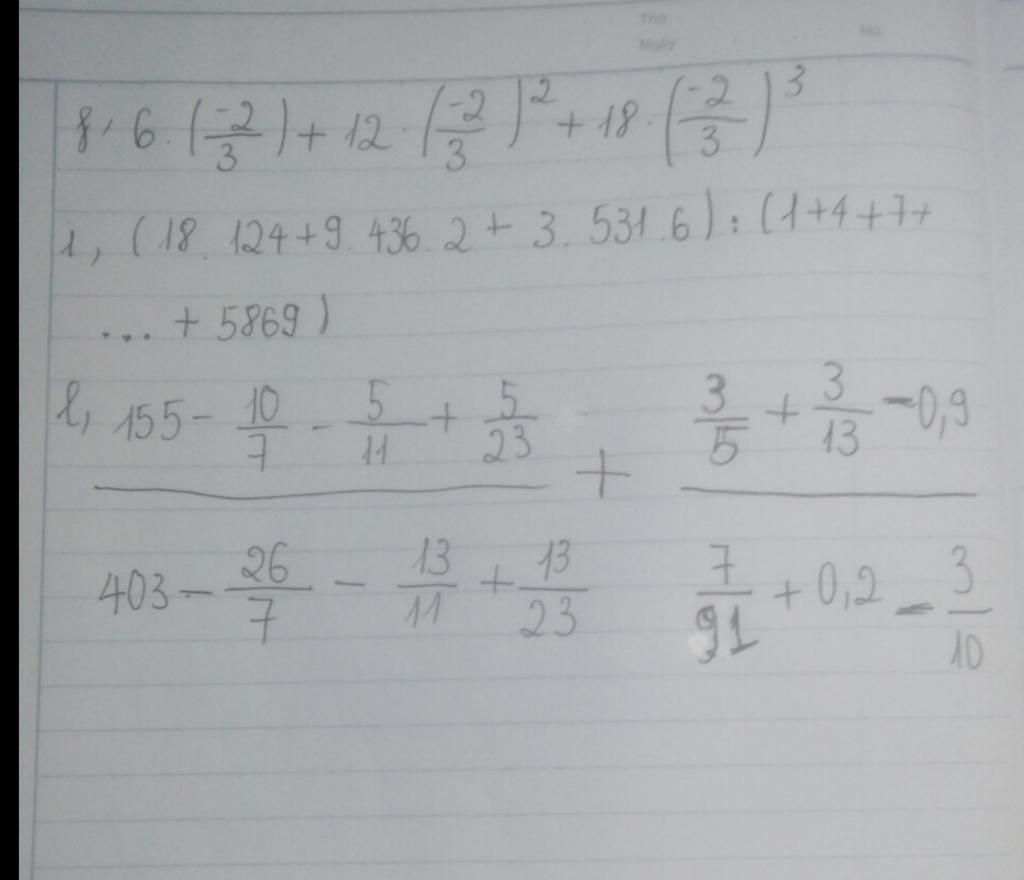 Thứ
Ngày
No.
f, 6 . (-2/3) + 12 . (-2/3)^2 + 18 . (-2/3)^3
i, (18 . 124 + 9 . 436 . 2 + 3 . 531 . 6) : (1+4+7+
... + 5869)
l, (155 - 10/7 - 5/11 + 5/23) / (403 - 26/7 - 13/11 + 13/23) + (3/5 + 3/13 - 0,9) / (7/91 + 0,2 - 3/10)